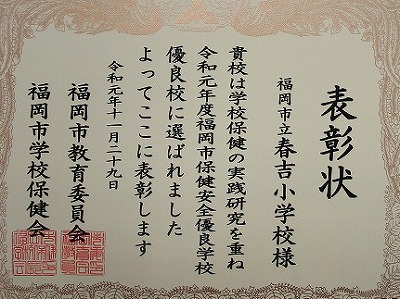 表彰状
福岡市立春吉小学校様
貴校は学校保健の実践研究を重ね
令和元年度福岡市保健安全優良学校
優良校に選ばれました
よってここに表彰します
令和元年十一月二十九日
福岡市教育委員会
福岡市学校保健会